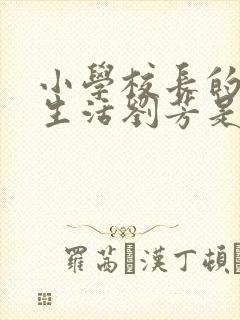 小學校長的
生活劉芳是
羅茜·漢丁頓·